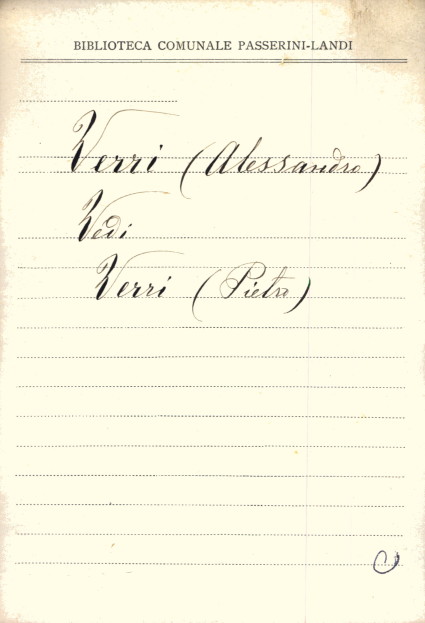 BIBLIOTECA COMUNALE PASSERINI-LANDI
Verri (Alessandro)
Vedi
Verri (Pietro)